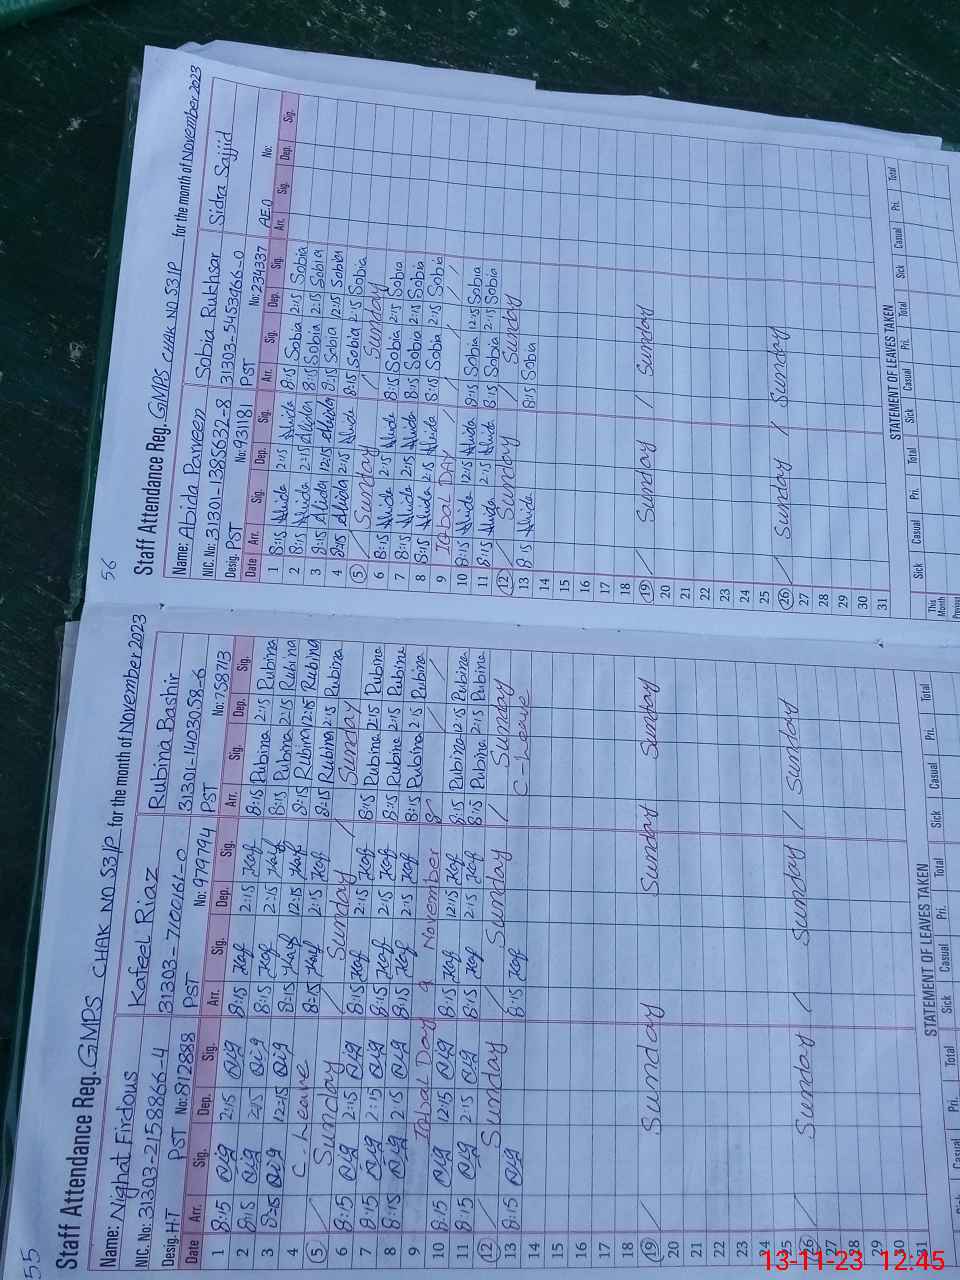 55
Staff Attendance Reg. GMPS CHAK NO 531P for the month of November 2023
Name: Nighat Firdous Kafeel Riaz Rubina Bashir
NIC. No: 31303-2158866-4 31303-7100161-0 31301-1403058-6
Desig. H·T PST No: 812888 PST No: 979794 PST No: 758713
Date Arr. Sig. Dep. Sig. Arr. Sig. Dep. Sig. Arr. Sig. Dep. Sig.
1 8:15 2:15 8:15 2:15 8:15 Rubina 2:15 Rubina
2 8:15 2:15 8:15 2:15 8:15 Rubina 2:15 Rubina
3 8:15 12:15 8:15 12:15 8:15 Rubina 12:15 Rubina
4 C-Leave 8:15 2:15 8:15 Rubina 2:15 Rubina
5 Sunday Sunday Sunday
6 8:15 2:15 8:15 2:15 8:15 Rubina 2:15 Rubina
7 8:15 2:15 8:15 2:15 8:15 Rubina 2:15 Rubina
8 8:15 2:15 8:15 2:15 8:15 Rubina 2:15 Rubina
9 Iqbal Day 9 November
10 8:15 12:15 8:15 12:15 8:15 Rubina 12:15 Rubina
11 8:15 2:15 8:15 2:15 8:15 Rubina 2:15 Rubina
12 Sunday Sunday Sunday
13 8:15 8:15 C-Leave
14
15
16
17
18
19 Sunday Sunday Sunday
20
21
22
23
24
25
26 Sunday Sunday Sunday
27
28
29
30
31
STATEMENT OF LEAVES TAKEN
Sick Casual Pri. Total Sick Casual Pri. Total Sick Casual Pri. Total
56
Staff Attendance Reg. GMPS CHAK NO 531P for the month of November 2023
Name: Abida Parveen Sobia Rukhsar Sidra Sajjid
NIC. No: 31301-1385632-8 31303-5453066-0
Desig. PST No: 931181 PST No: 234337 AEO No:
Date Arr. Sig. Dep. Sig. Arr. Sig. Dep. Sig. Arr. Sig. Dep. Sig.
1 8:15 2:15 8:15 Sobia 2:15 Sobia
2 8:15 2:15 8:15 Sobia 2:15 Sobia
3 8:15 12:15 8:15 Sobia 12:15 Sobia
4 8:15 2:15 8:15 Sobia 2:15 Sobia
5 Sunday Sunday
6 8:15 2:15 8:15 Sobia 2:15 Sobia
7 8:15 2:15 8:15 Sobia 2:15 Sobia
8 8:15 2:15 8:15 Sobia 2:15 Sobia
9 IQbal DAY
10 8:15 12:15 8:15 Sobia 12:15 Sobia
11 8:15 2:15 8:15 Sobia 2:15 Sobia
12 Sunday Sunday
13 8:15 8:15 Sobia
14
15
16
17
18
19 Sunday Sunday
20
21
22
23
24
25
26 Sunday Sunday
27
28
29
30
31
STATEMENT OF LEAVES TAKEN
Sick Casual Pri. Total Sick Casual Pri. Total Sick Casual Pri. Total
This Month
Previous
13-11-23 12:45